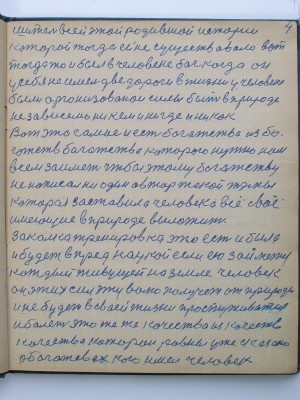 4
чителвсей этой родившой истории
которой тогда ейне существавало вот
тогдато и был в человеке бог когда он
у себя не имел две дороги в жизни у человека
были организованои силы быть в природе
независемо ни кем и нигде и ни как
Вот это самые и есть богатства из бо-
готств богатства которого нужно нам
всем займет чтбы этому богатству
не написал ни один автор такой
которая заставила человека всё своё
имеющие в природе выложить.
Закалка тренировка это есть и была
и будет в пред наукой если ею займется
каждый живущей на земле человек
он этих сил эту волю получет от природы
и не будет в своей жизни простуживатся
и болеть это та же качества из качеств
качества которои равны уже сказано
о богатствах кого имел человек